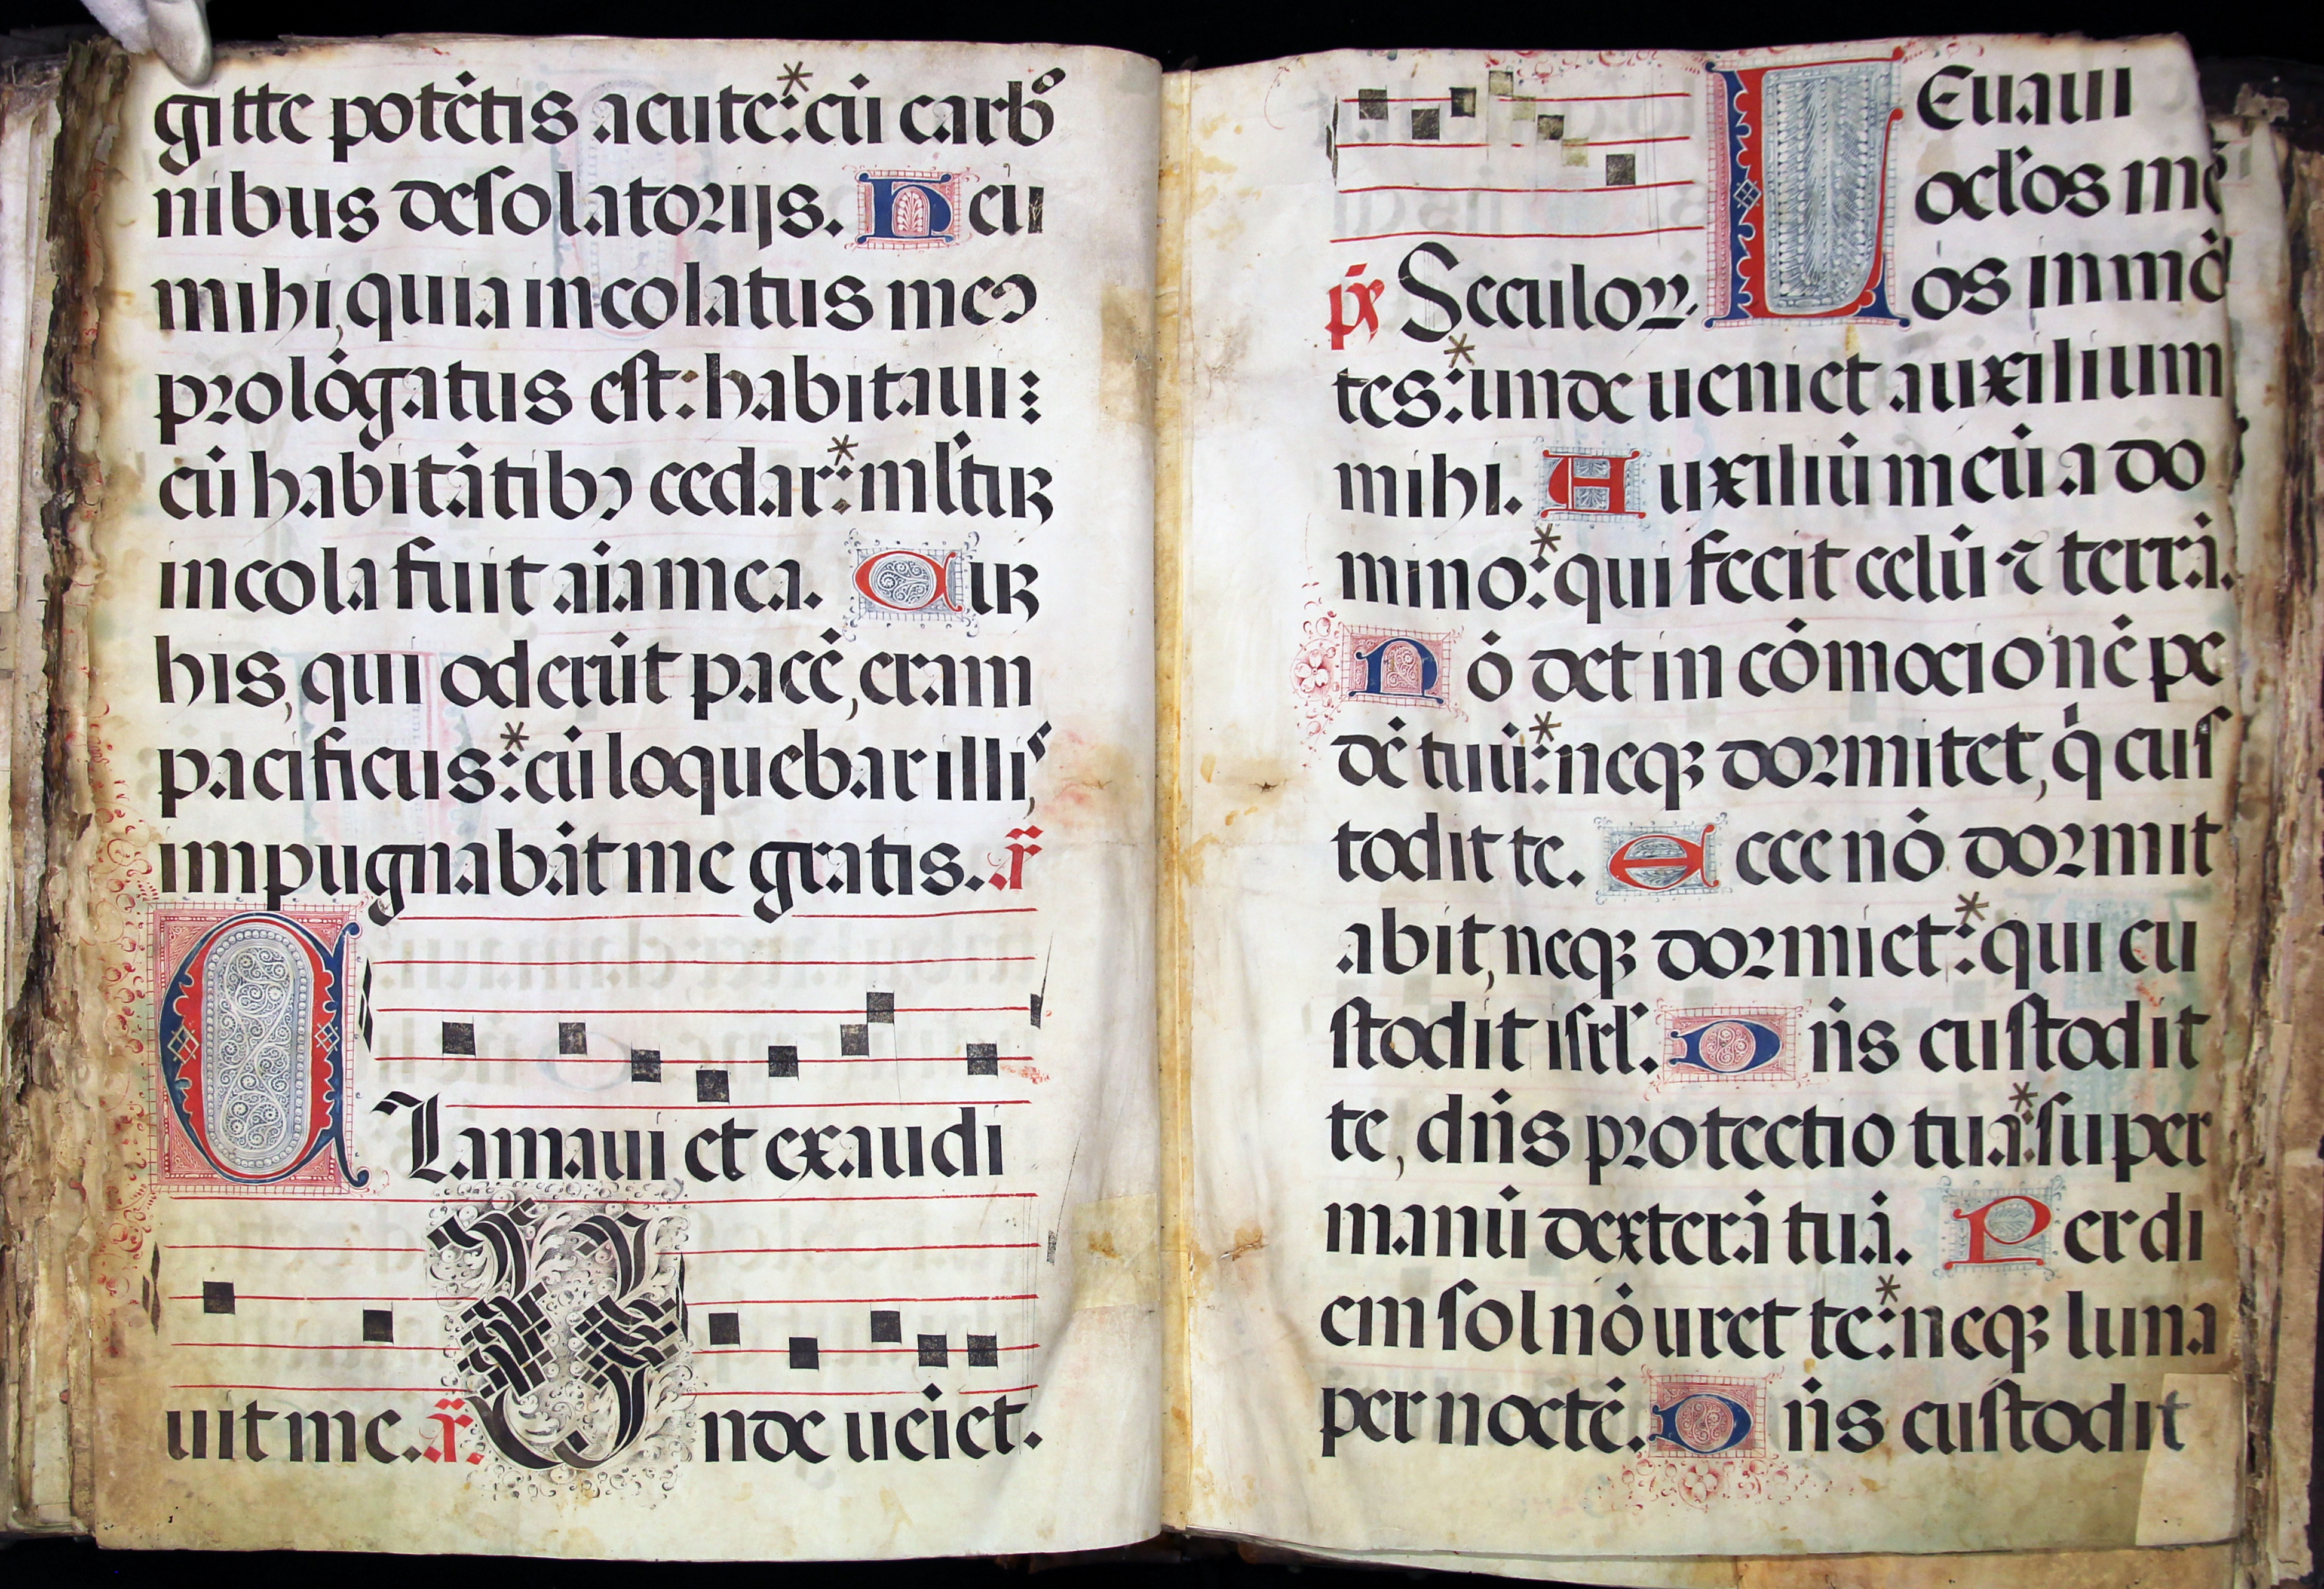 gitte potētis acute:* cū carbo
nibus desolatorijs. Heu
mihi, quia incolatus meꝰ
prolōgatus est: habitaui:
cū habitātibꝰ cedar:* ml'tuꝫ
incola fuit aīa mea. Cuꝫ
his, qui oderūt pacē, eram
pacificus:* cū loquebar illis,
impugnabāt me gratis. añ
CLamaui et exaudi
uit me. añ. Unde ueīet.
ps̄ Seculoꝝ. LEuaui
ocl'os me
os in mō
tes:* unde ueniet auxilium
mihi. Auxiliū meū a do
mino:* qui fecit celū ⁊ terrā.
Nō det in cōmocionē pe
dē tuū:* neqꝫ dormitet, q̇ cus
todit te. Ecce nō dormit
abit, neqꝫ dormiet:* qui cu
stodit isrl'. Dn̄s custodit
te, dn̄s protectio tua:* super
manū dexterā tuā. Per di
em sol nō uret te:* neqꝫ luna
per noctē. Dn̄s custodit